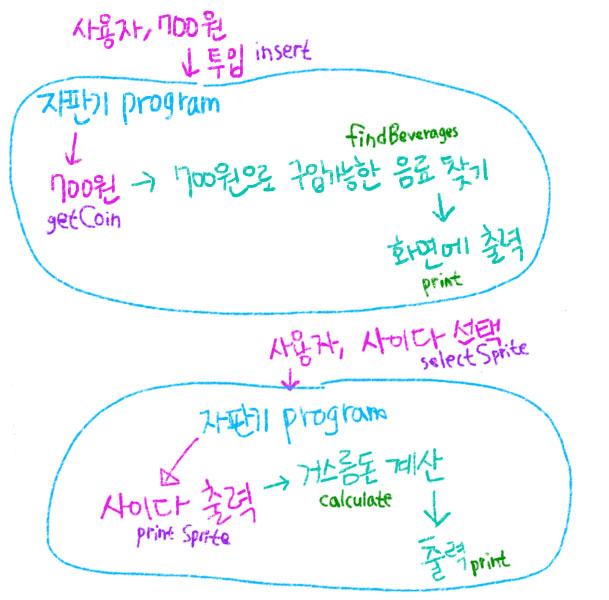 사용자, 700원
투입 insert
자판기 program
findBeverages
700원 → 700원으로 구입가능한 음료 찾기
getCoin
화면에 출력
print
사용자, 사이다 선택
selectSprite
자판기 program
사이다 출력 → 거스름돈 계산
print Sprite
calculate
출력 print